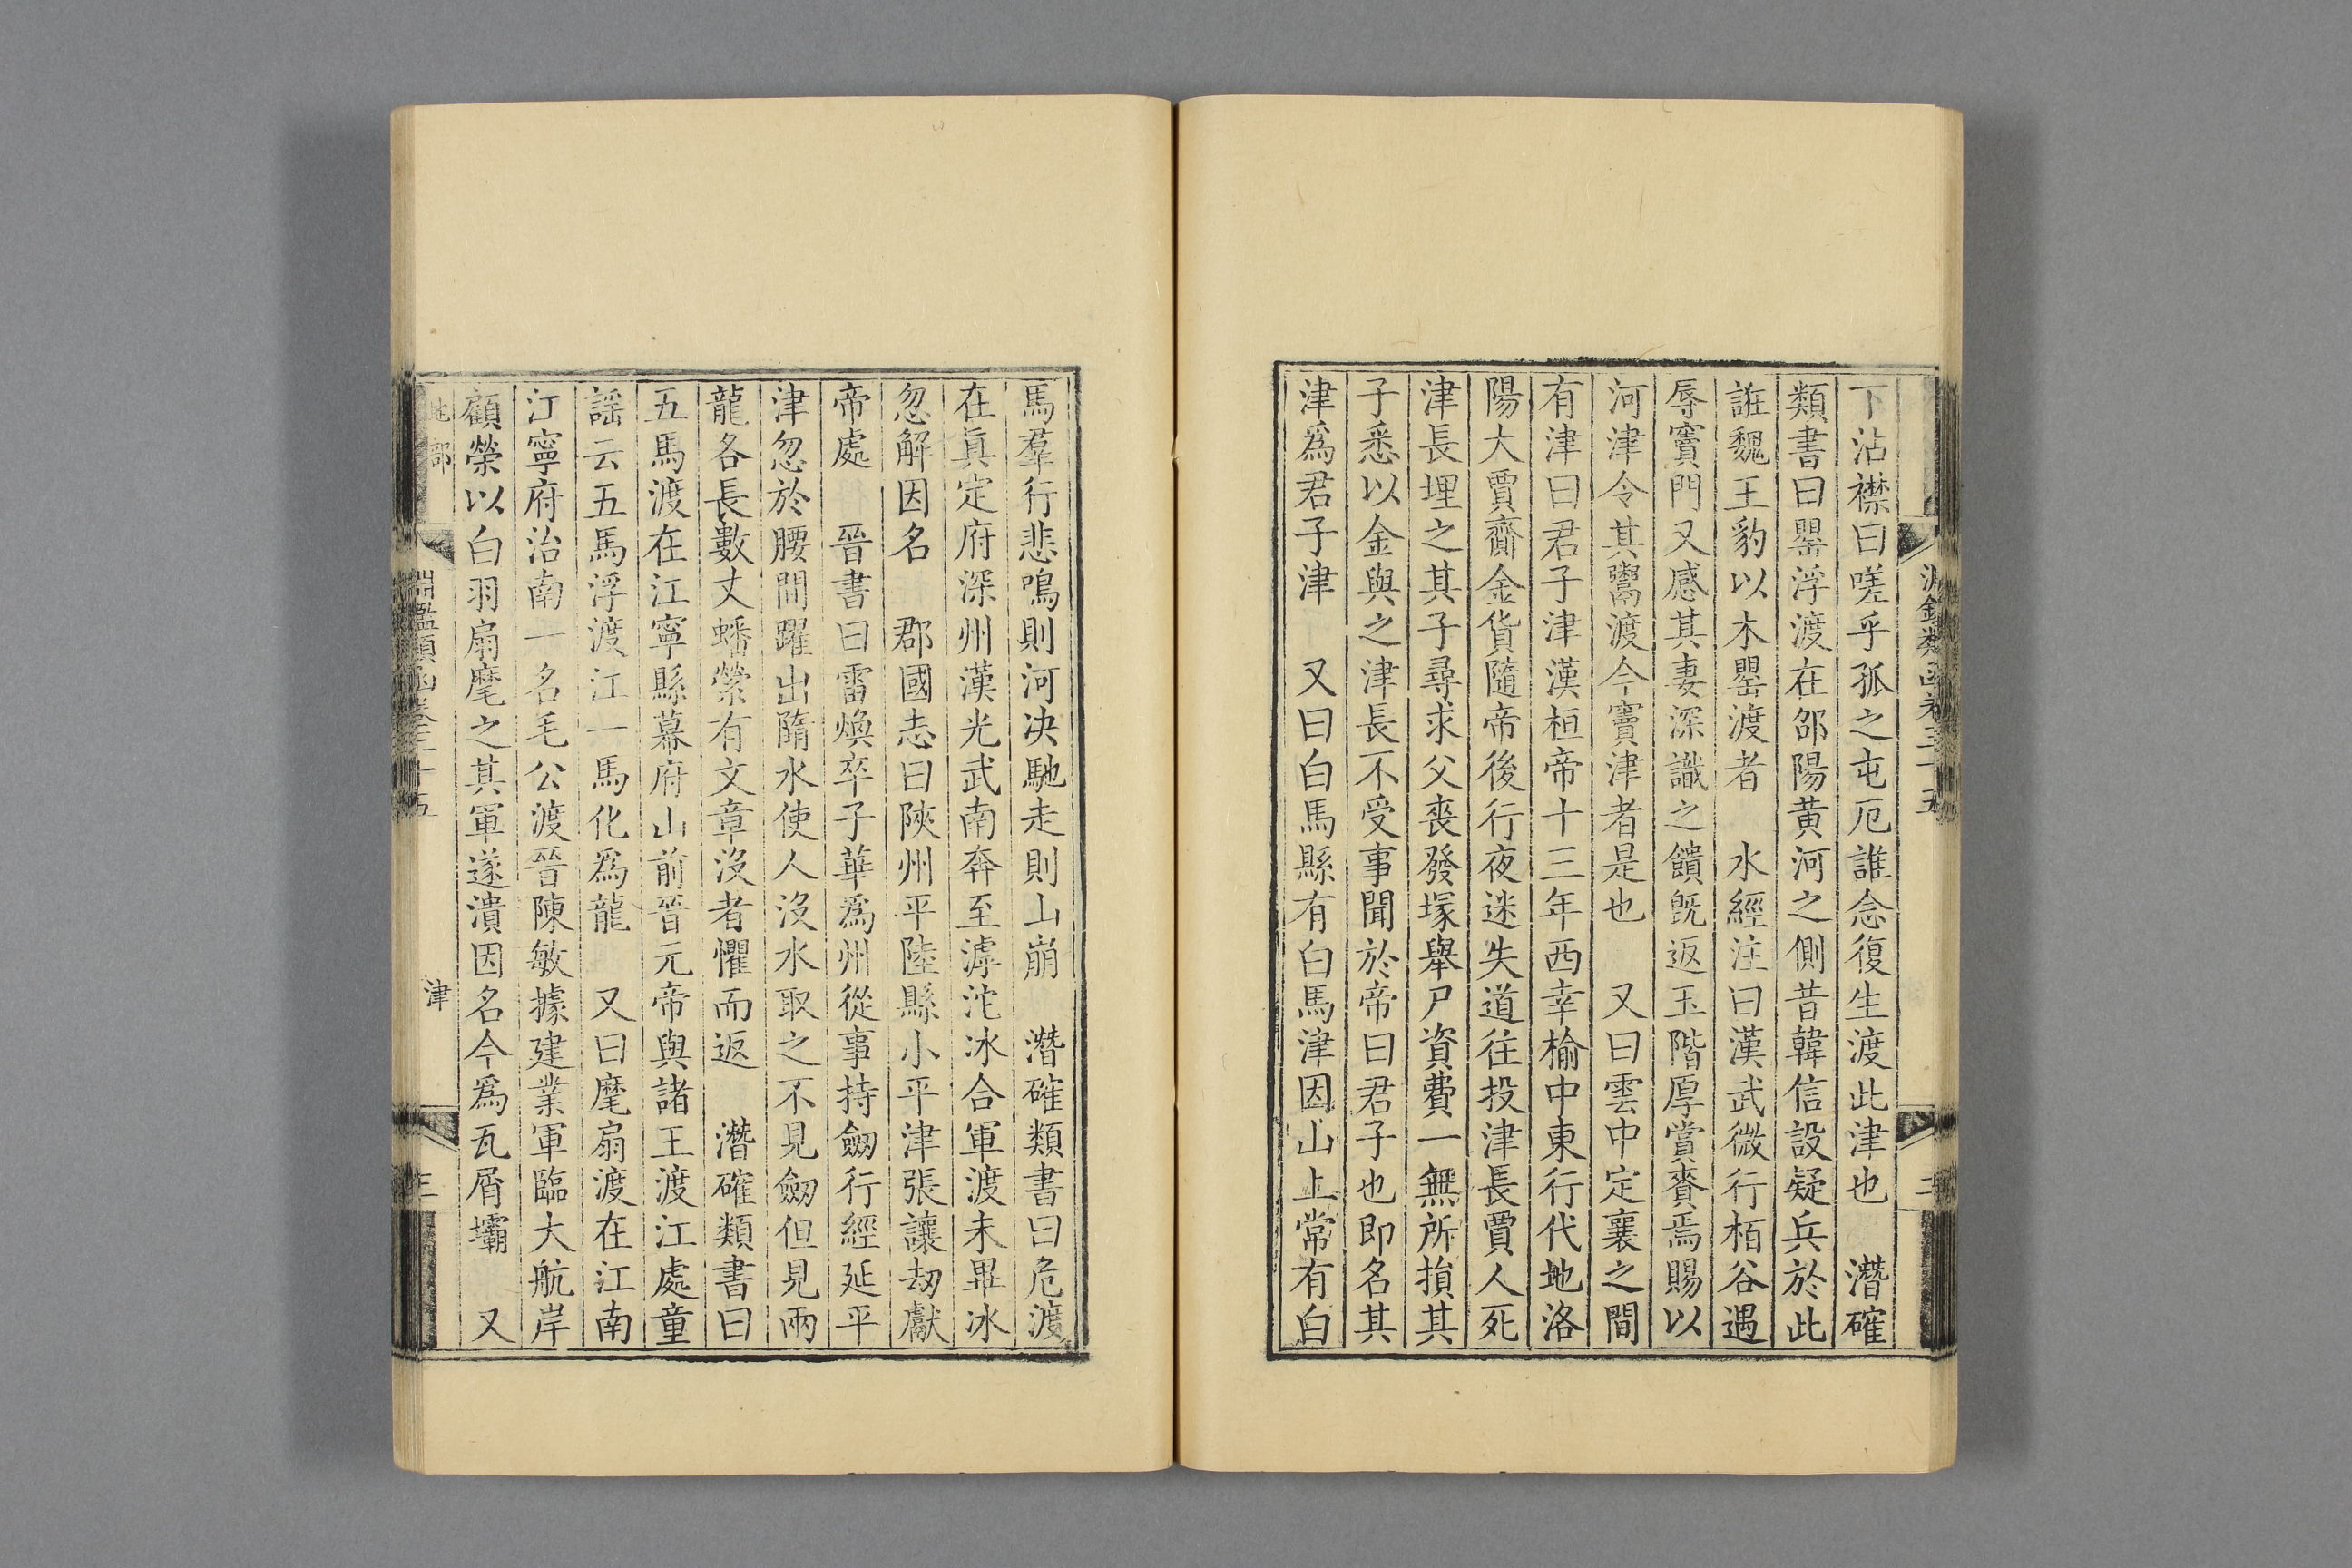 下沾襟曰嗟乎孤之屯厄誰念復生渡此津也　潛確
類書曰罌浮渡在郃陽黃河之側昔韓信設疑兵於此
誑魏王豹以木罌渡者　水經注曰漢武微行栢谷遇
辱竇門又感其妻深識之饋旣返玉階厚賞賚焉賜以
河津令其鬻渡今竇津者是也　又曰雲中定襄之間
有津曰君子津漢桓帝十三年西幸楡中東行代地洛
陽大賈齎金貨隨帝後行夜迷失道往投津長賈人死
津長埋之其子尋求父喪發塚舉尸資費一無所損其
子悉以金與之津長不受事聞於帝曰君子也即名其
津爲君子津　又曰白馬縣有白馬津因山上常有白
馬羣行悲鳴則河决馳走則山崩　潛確類書曰危渡
在眞定府深州漢光武南奔至滹沱冰合軍渡未畢冰
忽解因名　郡國志曰陝州平陸縣小平津張讓刼獻
帝處　晉書曰雷煥卒子華爲州從事持劒行經延平
津忽於腰間躍出隋水使人沒水取之不見劒但見兩
龍各長數丈蟠縈有文章沒者懼而返　潛確類書曰
五馬渡在江寧縣幕府山前晉元帝與諸王渡江處童
謡云五馬浮渡江一馬化爲龍　又曰麾扇渡在江南
江寧府治南一名毛公渡晉陳敏據建業軍臨大航岸
顧榮以白羽扇麾之其軍遂潰因名今爲瓦屑壩　又
地部　淵鑑類函卷三十五　津　三